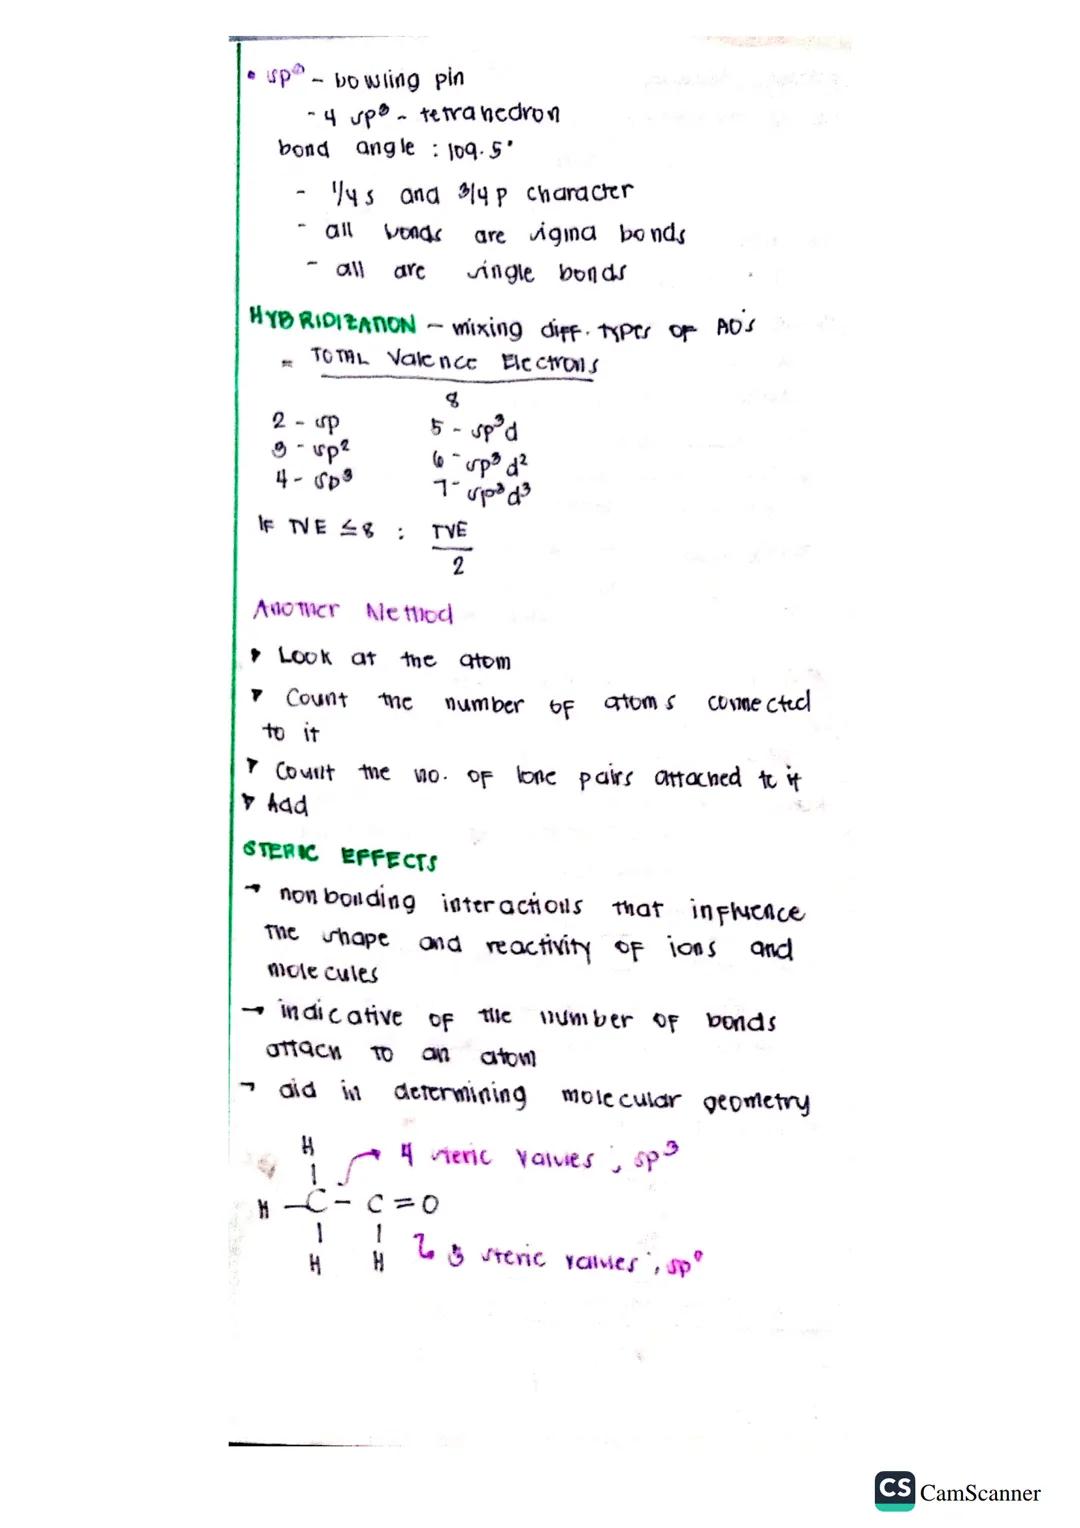 • sp³ - bowling pin
- 4 sp³ - tetrahedron
bond angle : 109.5°
- 1/4 s and 3/4 p character
- all bonds are sigma bonds
- all are single bonds
HYBRIDIZATION - mixing diff. types of AO's
= TOTAL Valence Electrons
8
2 - sp 5 - sp³d
3 - sp² 6 - sp³d²
4 - sp³ 7 - sp³d³
IF TVE ≤ 8 : TVE
2
Another Method
▸ Look at the atom
▸ Count the number of atoms connected
to it
▸ Count the no. of lone pairs attached to it
▸ Add
STERIC EFFECTS
→ nonbonding interactions that influence
the shape and reactivity of ions and
molecules
→ indicative of the number of bonds
attach to an atom
→ aid in determining molecular geometry
H → 4 steric values ; sp³
H - C - C = O
H H 3 steric values ; sp²
CS CamScanner